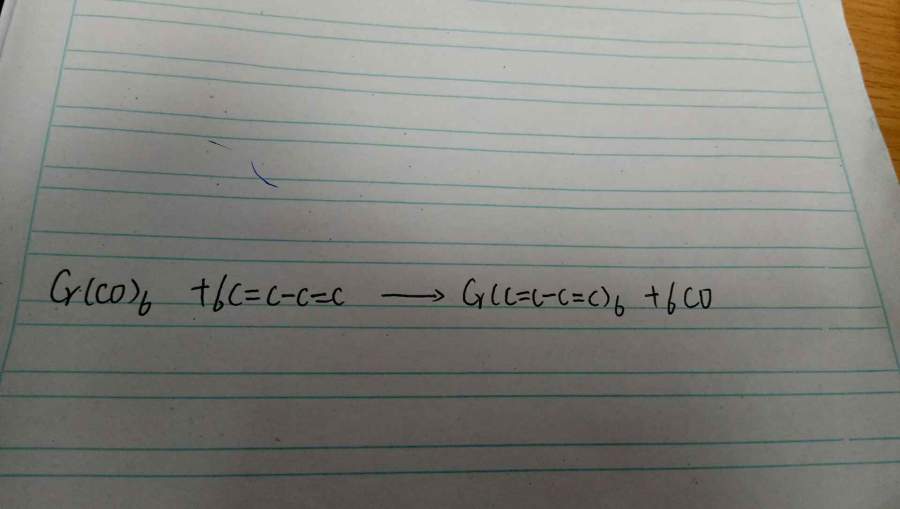 Cr(CO)6 + 6C=C-C=C ⟶ Cr(C=C-C=C)6 + 6CO